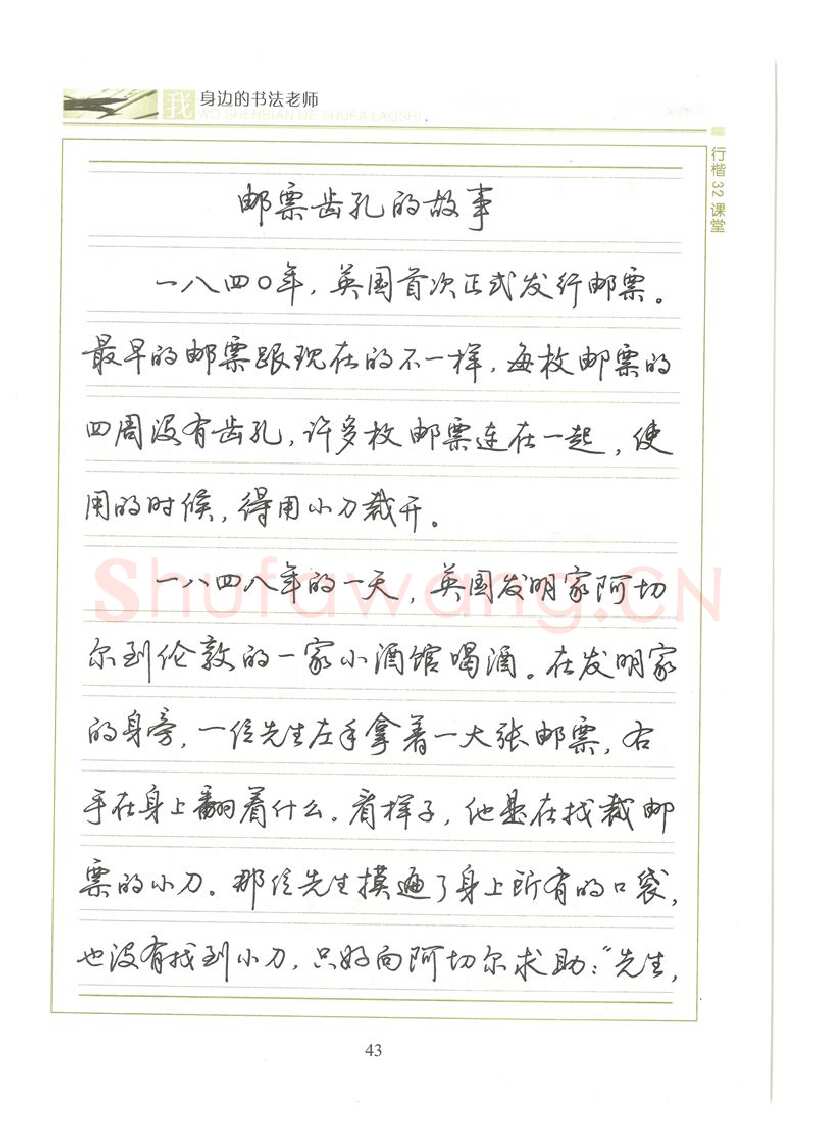 我身边的书法老师
WO SHENBIAN DE SHUFA LAOSHI
行楷32课堂
邮票齿孔的故事
一八四〇年，英国首次正式发行邮票。
最早的邮票跟现在的不一样，每枚邮票的
四周没有齿孔，许多枚邮票连在一起，使
用的时候，得用小刀裁开。
一八四八年的一天，英国发明家阿切
尔到伦敦的一家小酒馆喝酒。在发明家
的身旁，一位先生左手拿着一大张邮票，右
手在身上翻着什么。看样子，他是在找裁邮
票的小刀。那位先生摸遍了身上所有的口袋，
也没有找到小刀，只好向阿切尔求助：“先生，
Shufawang.CN
43